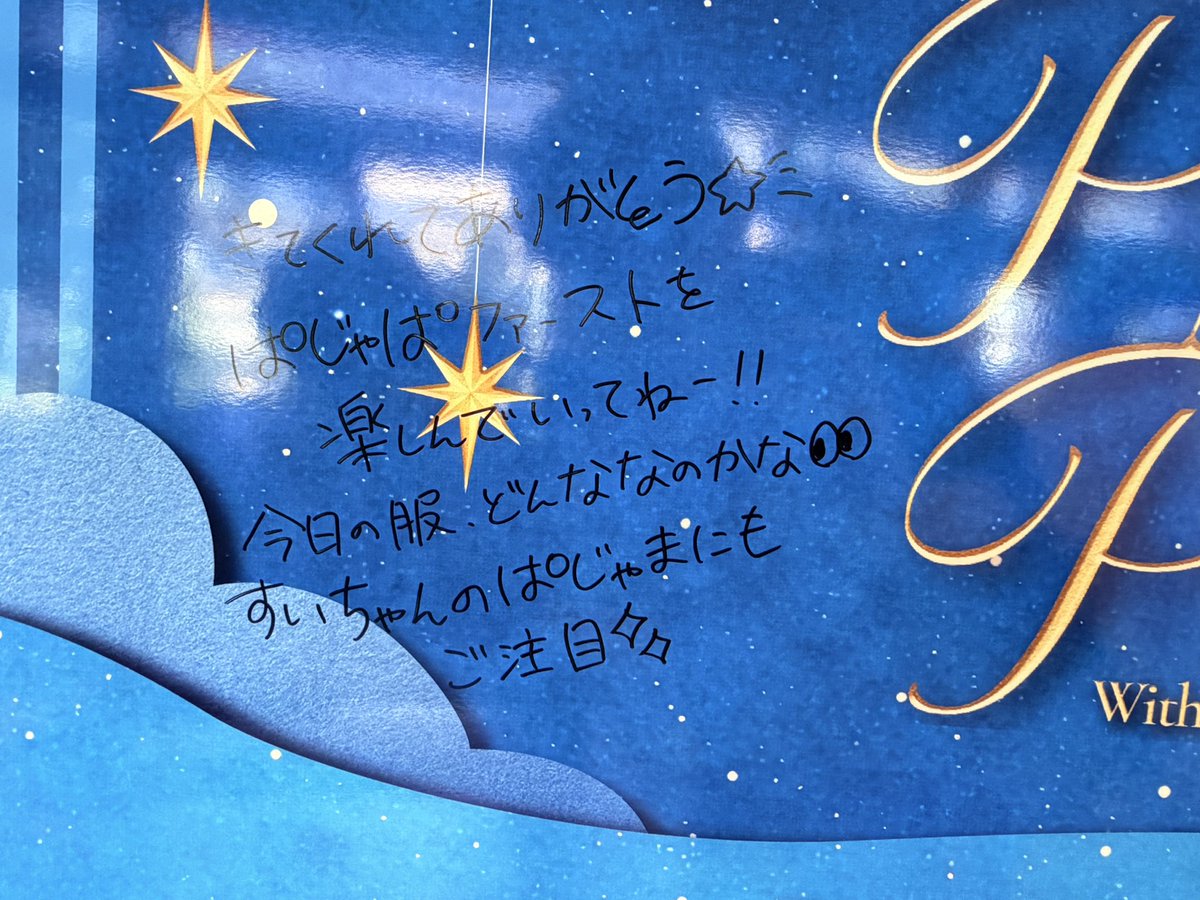 きてくれてありがとう☆
ぱじゃぱファーストを
楽しんでいってねー!!
今日の服、どんななのかな👀
すいちゃんのぱじゃまにも
ご注目
P
P
With